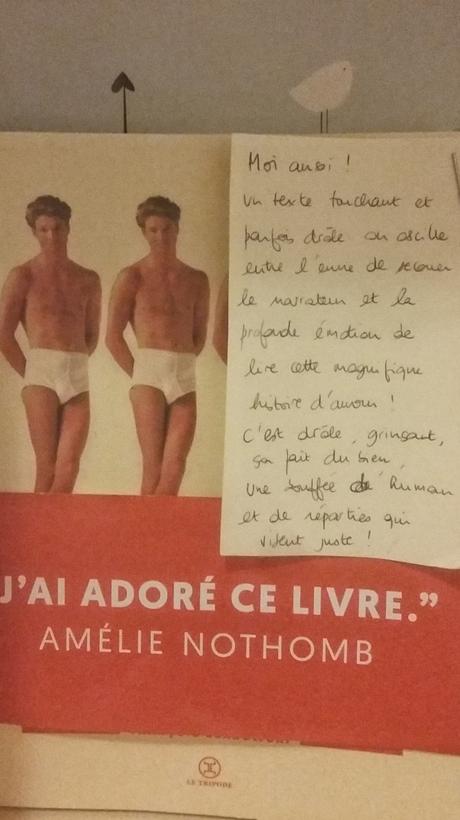 Moi aussi !
Un texte touchant et
parfois drôle on oscille
entre l'envie de secouer
le narrateur et la
profonde émotion de
lire cette magnifique
histoire d'amour !
C'est drôle, grinçant,
ça fait du bien,
Une bouffée d'human
et de réparties qui
visent juste !
J'AI ADORÉ CE LIVRE.”
AMÉLIE NOTHOMB
LE TRIPODE